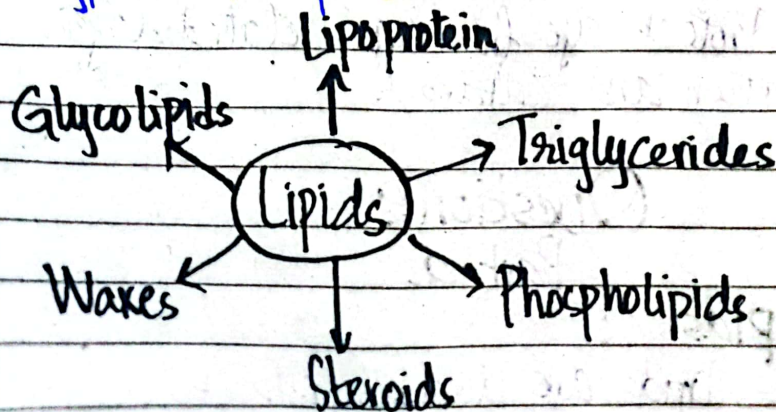 Lipoprotein
Glycolipids
Triglycerides
Lipids
Waxes
Phospholipids
Steroids